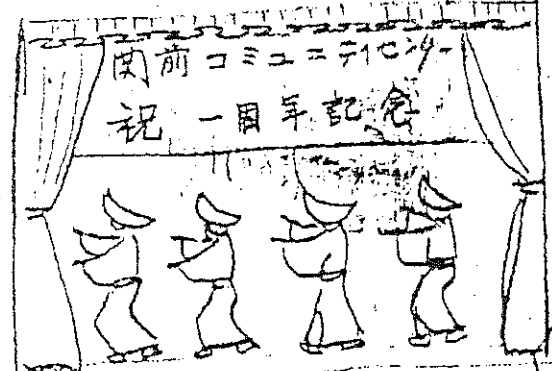 関前コミュニティセンター
祝 一周年記念